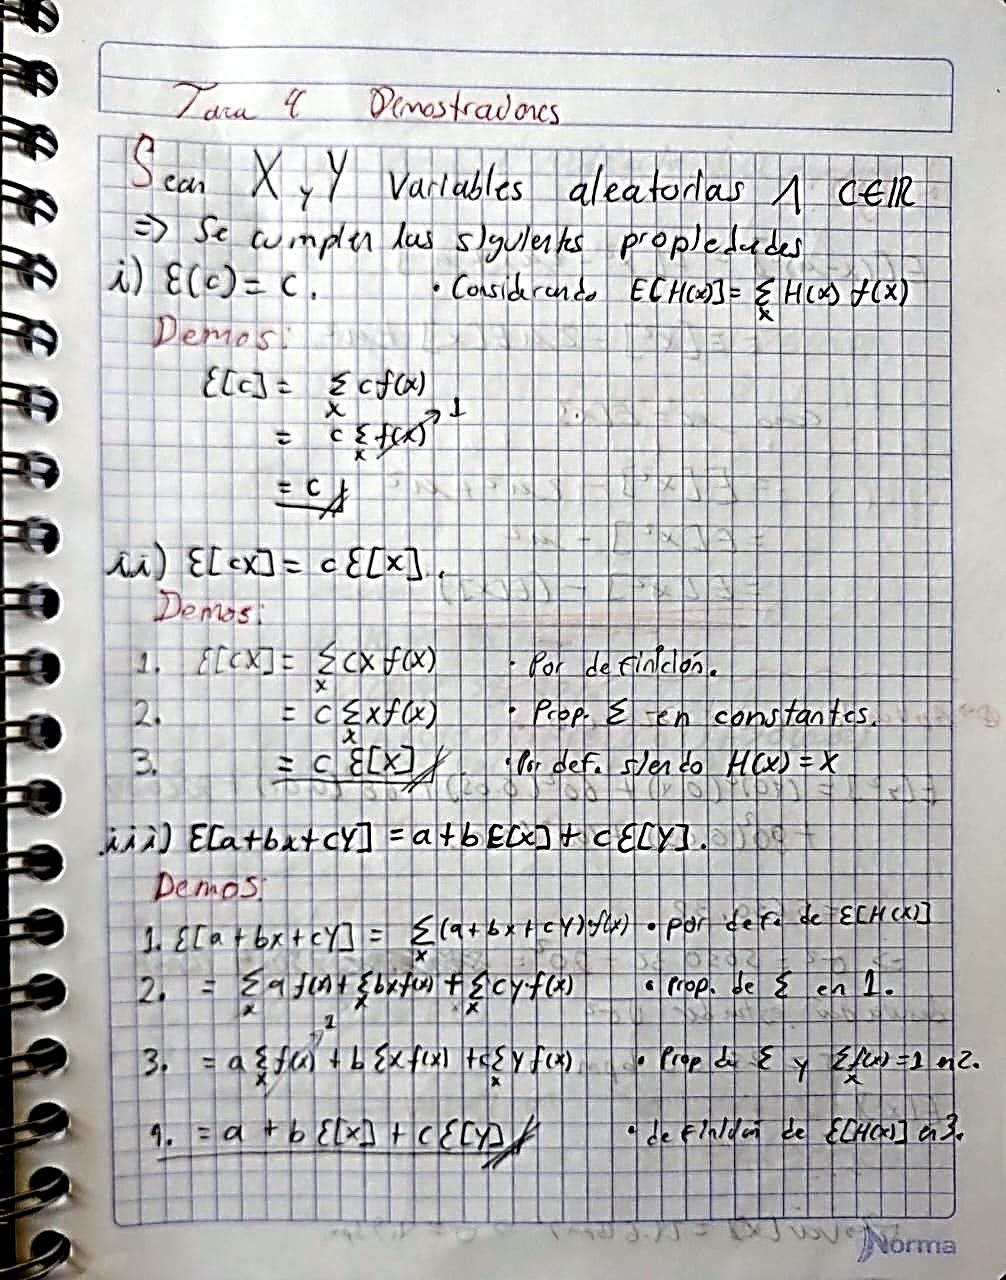 Tarea 4 Demostraciones
Sean X y Y variables aleatorias ∧ C∈ℝ
=> Se cumplen las siguientes propiedades
i) E(c) = c. • Considerando E[H(x)] = Σ_x H(x) f(x)
Demos:
E[c] = Σ_x c f(x)
= c Σ_x f(x) → 1
= c
ii) E[cX] = c E[X].
Demos:
1. E[cX] = Σ_x cx f(x) • Por definición.
2. = c Σ_x x f(x) • Prop. Σ en constantes.
3. = c E[X] • Por def. siendo H(x) = x
iii) E[a+bx+cY] = a+b E[x] + c E[Y].
Demos:
1. E[a+bx+cY] = Σ_x (a+bx+cY) f(x) • por def. de E[H(x)]
2. = Σ_x a f(x) + Σ_x bx f(x) + Σ_x cy f(x) • prop. de Σ en 1.
3. = a Σ_x f(x) → 1 + b Σ_x x f(x) + c Σ_x y f(x) • Prop de Σ y Σ_x f(x) = 1 en 2.
4. = a + b E[x] + c E[y] • definición de E[H(x)] en 3.
Norma